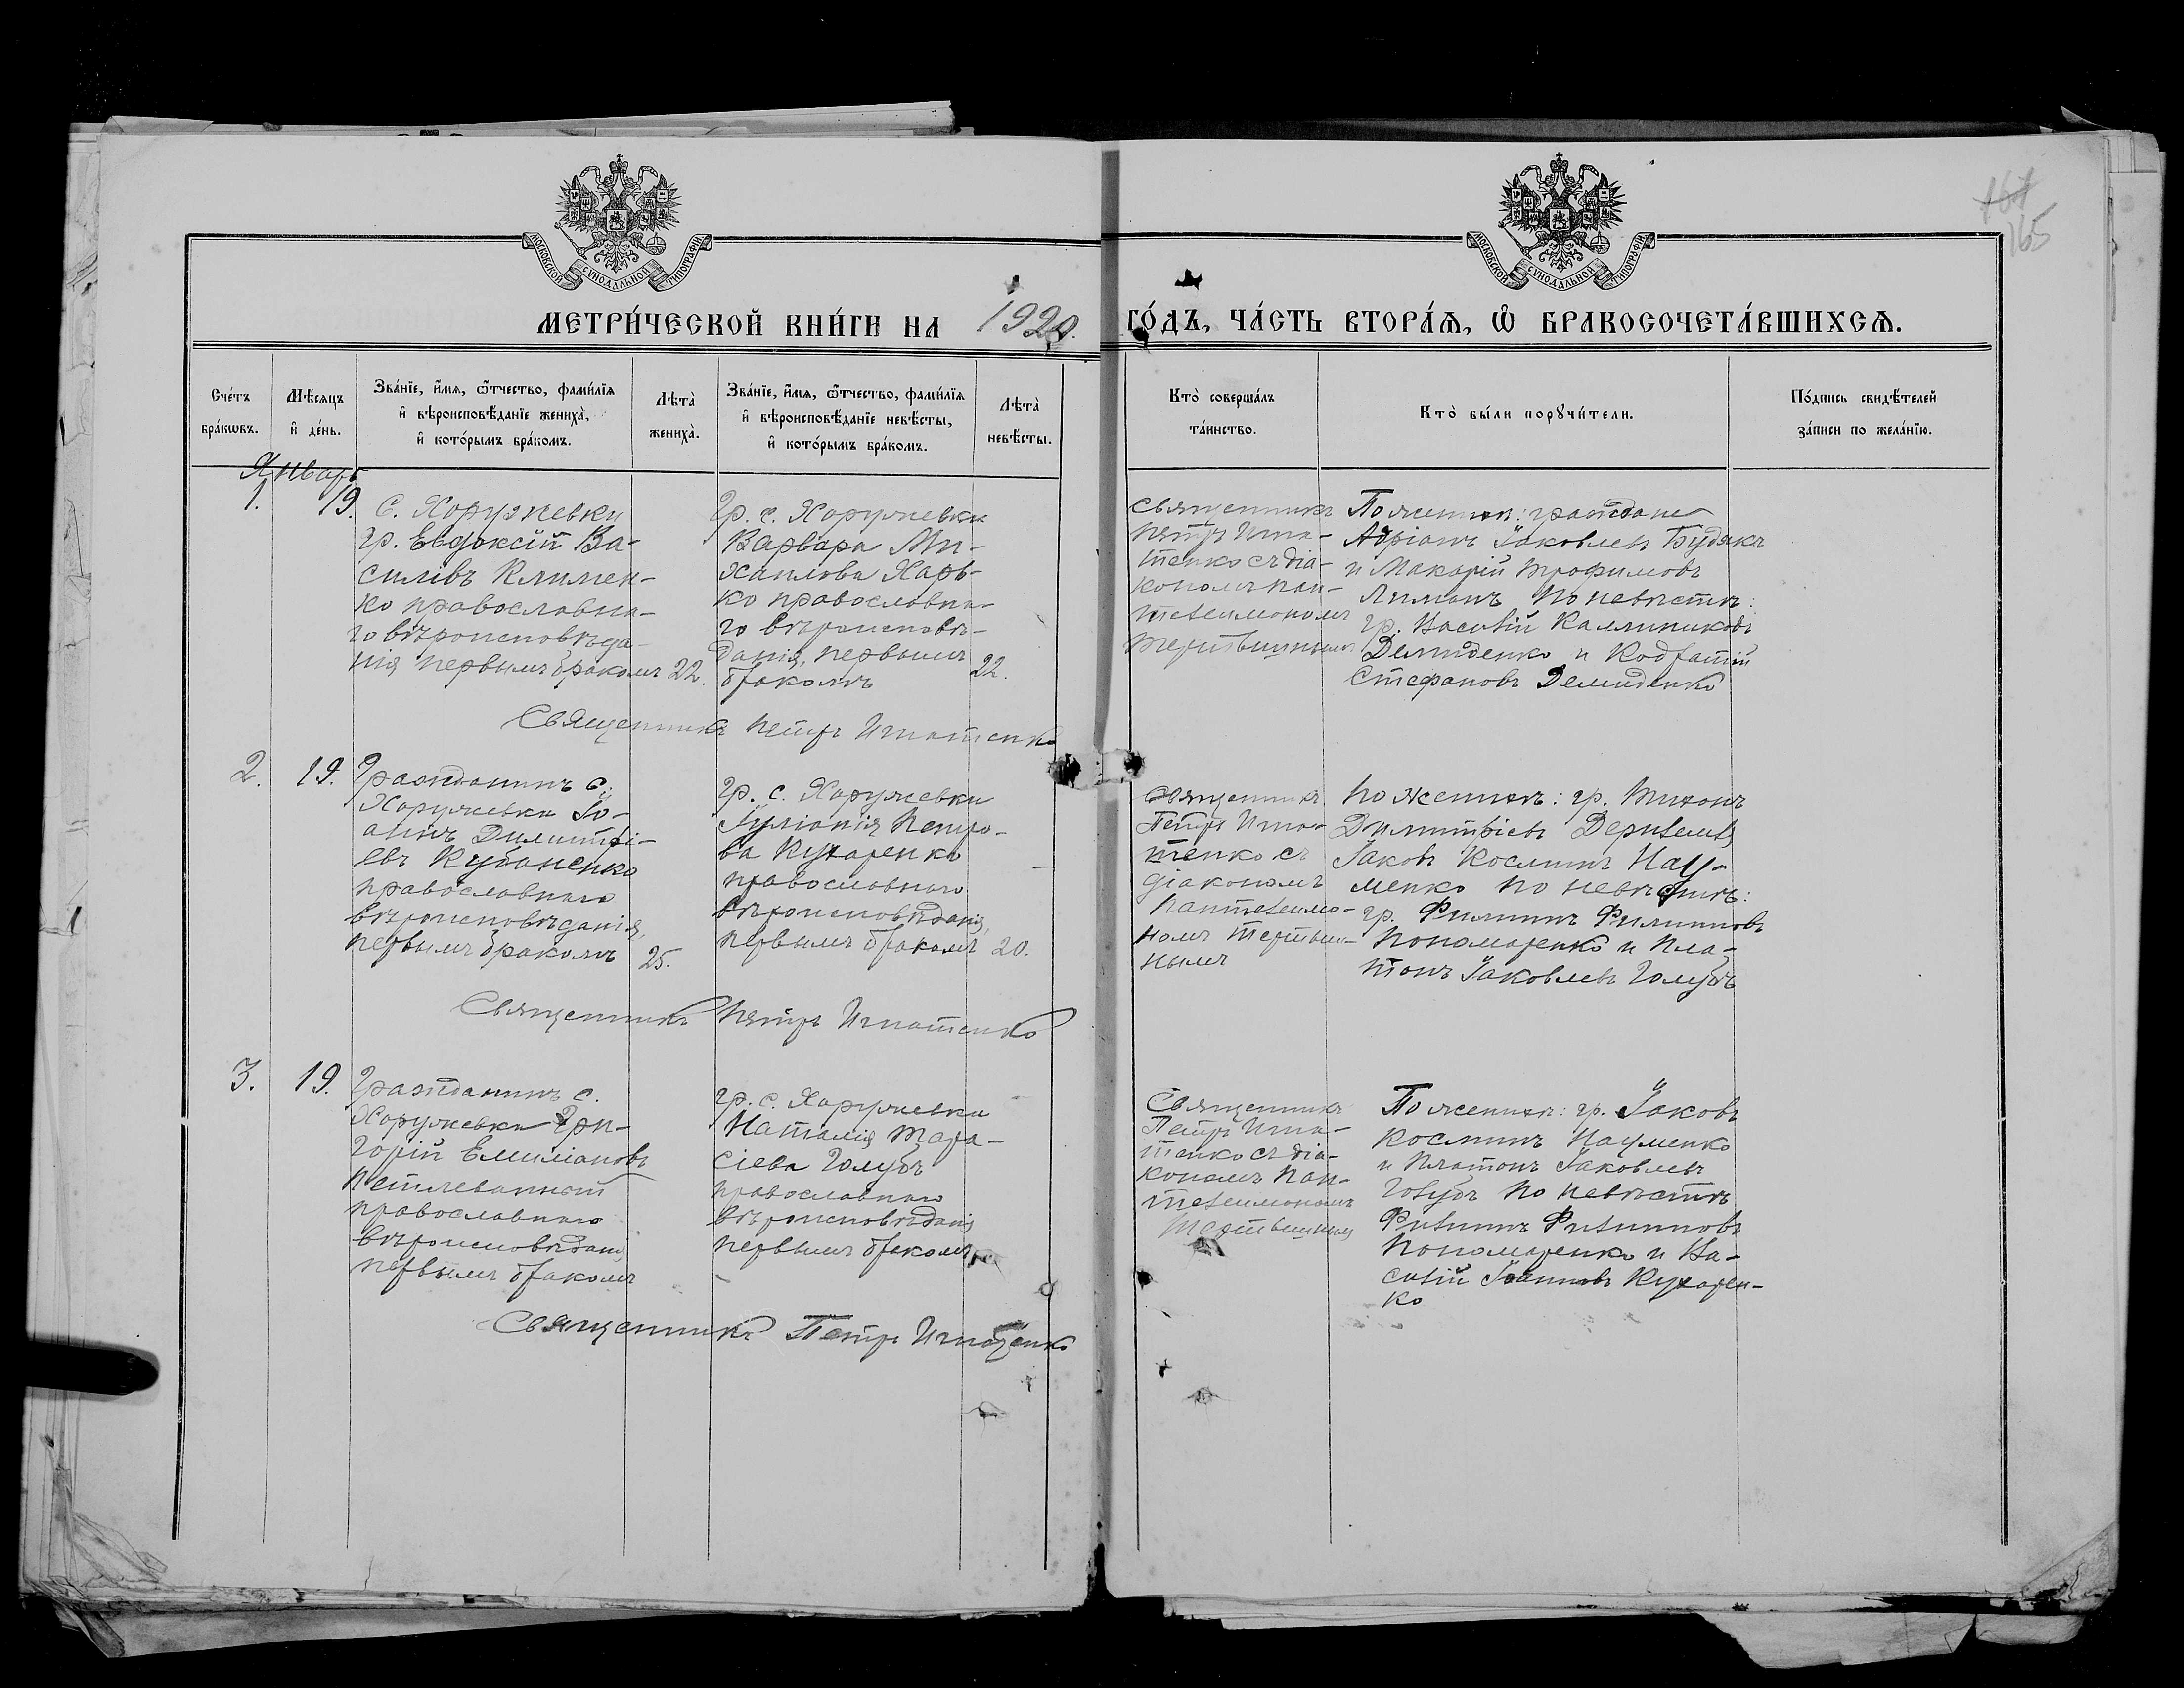 167
165
МОСКОВСКОЙ СѴНОДАЛЬНОЙ ТИПОГРАФІИ.
МОСКОВСКОЙ СѴНОДАЛЬНОЙ ТИПОГРАФІИ.
МЕТРИ́ЧЕСКОЙ КНИ́ГИ НА 1920. ГО́ДЪ, ЧА́СТЬ ВТОРА́Ѧ, Ѽ БРАКОСОЧЕТА́ВШИХСѦ.
Сче́тъ
бра́кѡвъ.
Мѣ́сѧцъ
и҆ де́нь.
Зва́нїе, и҆́мѧ, ѻ҆́тчество, фами́лїѧ
и҆ вѣроисповѣ́данїе жениха̀,
и҆ кото́рымъ бра́комъ.
Лѣта̀
жениха̀.
Зва́нїе, и҆́мѧ, ѻ҆́тчество, фами́лїѧ
и҆ вѣроисповѣ́данїе невѣ́сты,
и҆ кото́рымъ бра́комъ.
Лѣта̀
невѣ́сты.
Кто̀ соверша́лъ
та́инство.
Кто̀ бы́ли порꙋчи́тели.
По́дпись свидѣ́телей
за́писи по жела́нїю.
Январь
1.
19.
С. Хоружевки
гр. Евдоксій Ва-
силівъ Климен-
ко православна-
го вѣроисповѣда-
нія первымъ бракомъ
22.
гр. с. Хоружевки
Варвара Ми-
хаилова Харь-
ко православна-
го вѣроисповѣ-
данія, первымъ
бракомъ
22.
Священникъ
Петръ Игна-
тенко съ діа-
кономъ Пан-
телеимономъ
По женихѣ: граждане
Адріанъ Іаковлевъ Будякъ
и Макарій Трофимовъ
Лиманъ По невѣстѣ:
гр. Василій Каллиниковъ
Демиденко и Кодратій
Стефановъ Демиденко
Священникъ Петръ Игнатенко
2.
19.
Гражданинъ с.
Хоружевки Іо-
аннъ Димитрі-
евъ Кубаненко
православнаго
вѣроисповѣданія,
первымъ бракомъ
25.
гр. с. Хоружевки
Іуліанія Петро-
ва Кухаренко
православнаго
вѣроисповѣданія,
первымъ бракомъ
20.
Священникъ
Петръ Игна-
тенко съ
діакономъ
Пантелеимо-
номъ
нымъ
По женихѣ: гр. Тихонъ
Димитріевъ
Іаковъ Косминъ Нау-
менко по невѣстѣ:
гр. Филиппъ Филипповъ
Пономаренко и Пла-
тонъ Іаковлевъ Голубъ
Священникъ Петръ Игнатенко
3.
19.
Гражданинъ с.
Хоружевки Гри-
горій Емиліановъ
Петлеванный
православнаго
вѣроисповѣданія
первымъ бракомъ
гр. с. Хоружевки
Наталія Тара-
сіева Голубъ
православнаго
вѣроисповѣданія
первымъ бракомъ
Священникъ
Петръ Игна-
тенко съ діа-
кономъ Пан-
телеимономъ
По женихѣ: гр. Іаковъ
Косминъ Науменко
и Платонъ Іаковлевъ
Голубъ По невѣстѣ
Филиппъ Филипповъ
Пономаренко и Ва-
силій Іоанновъ Кухарен-
ко
Священникъ Петръ Игнатенко